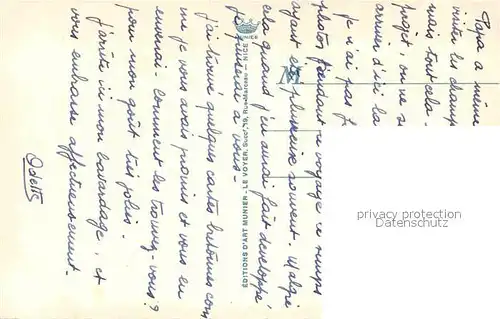 Papa a même
visiter les champs
mais tout cela
projet, on ne s
arriver d'ici là
je n'ai pas f
photos pendant le voyage le temps
ayant été pluvieux souvent. Malgré
cela quand j'en aurai fait développé
je penserai à vous -
j'ai trouvé quelques cartes bretonnes com
me je vous avais promis et vous en
enverrai comment les trouvez-vous?
pour mon goût très jolies.
J'arrête ici mon bavardage, et
vous embrasse affectueusement.
Odette
MUNIER
M
ÉDITIONS D'ART MUNIER - LE VOYER, Succr, 19, Rue Marceau - NICE
privacy protection
Datenschutz